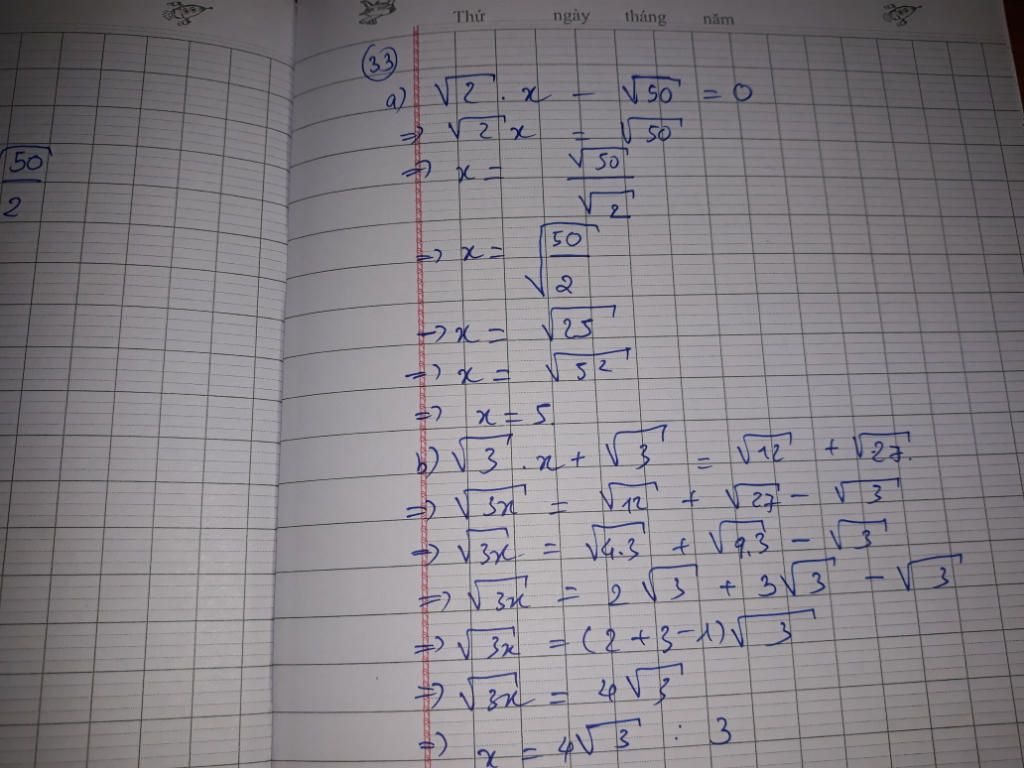 Thứ ngày tháng năm
33
a) √2 . x − √50 = 0
=> √2 x = √50
=> x = √50 / √2
√(50/2)
=> x = √(50/2)
=> x = √25
=> x = √5²
=> x = 5.
b) √3 . x + √3 = √12 + √27.
=> √3x = √12 + √27 − √3
=> √3x = √4.3 + √9.3 − √3
=> √3x = 2√3 + 3√3 − √3
=> √3x = (2 + 3 − 1)√3
=> √3x = 4√3
=> x = 4√3 : 3